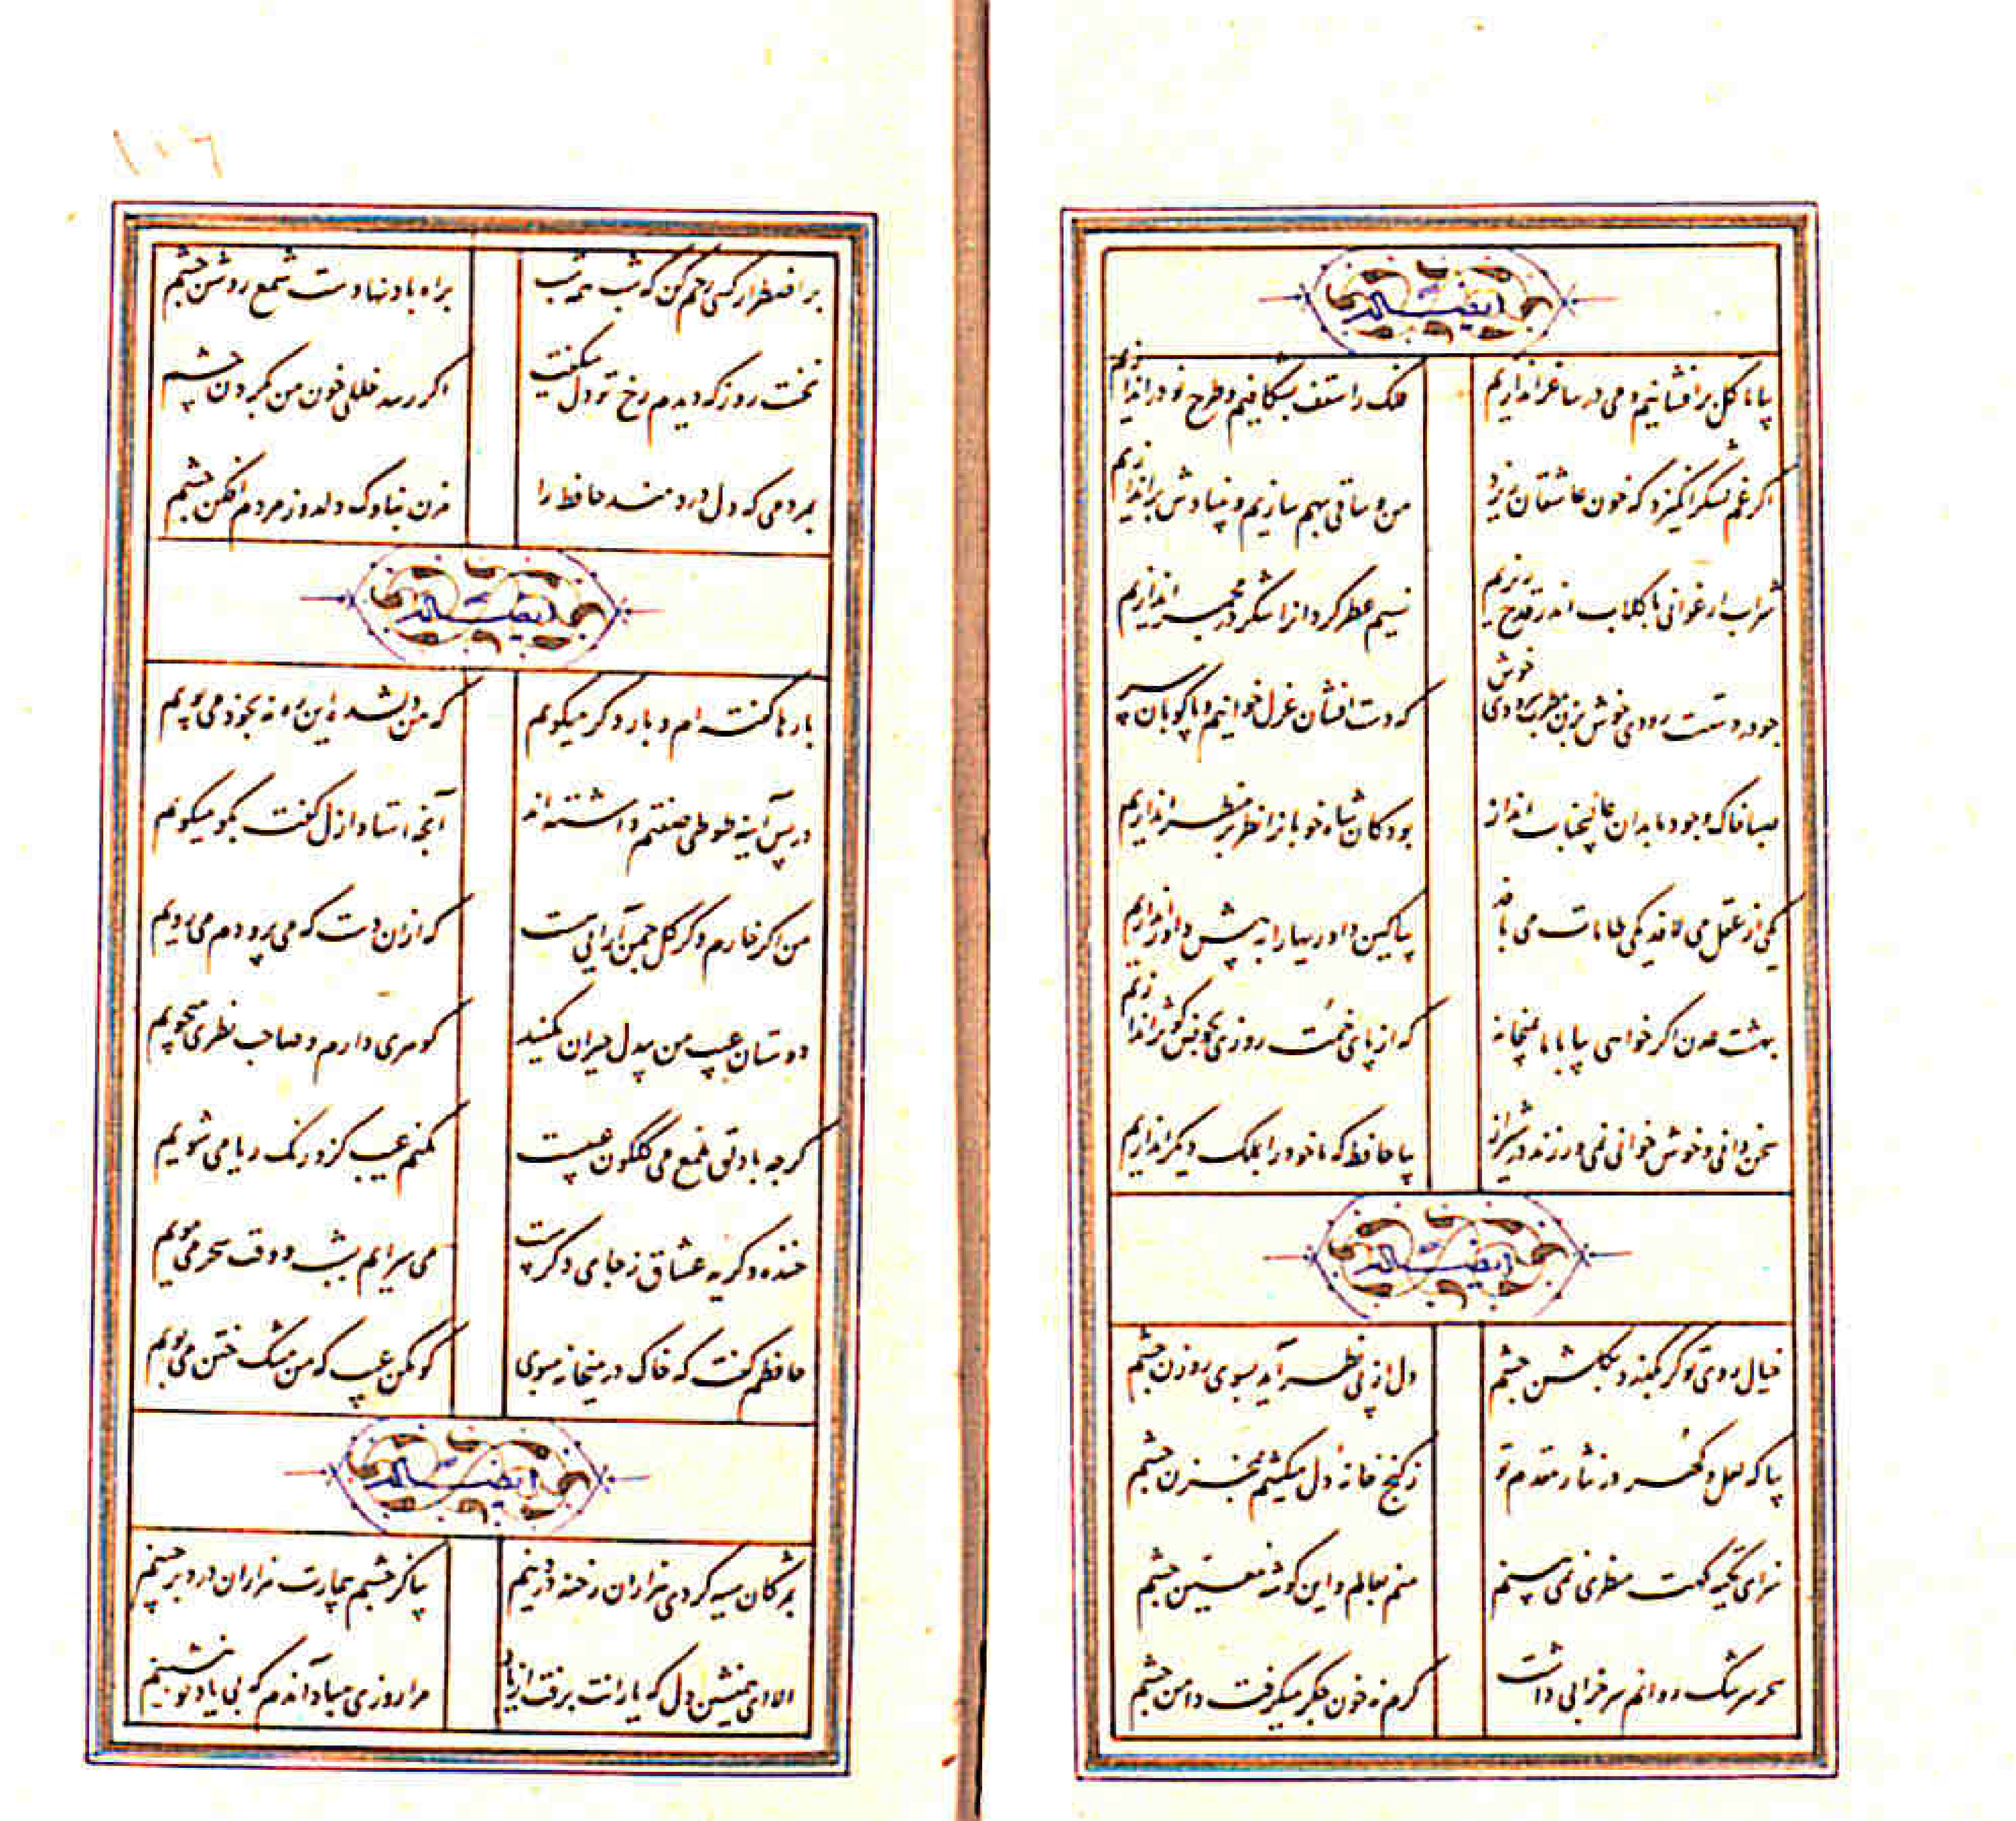 ایضاً له
بیا تا گل برافشانیم و می در ساغر اندازیم
فلک را سقف بشکافیم و طرح نو دراندازیم
اگر غم لشکر انگیزد که خون عاشقان ریزد
من و ساقی بهم سازیم و بنیادش براندازیم
شراب ارغوانی با گلاب اندر قدح ریزیم
نسیم عطر گردانرا شکر در مجمر اندازیم
چو در دستست رودی خوش بزن مطرب سرودی خوش
که دست افشان غزل خوانیم و پاکوبان سر
صبا خاک وجود ما بدان عالیجناب انداز
بود کان شاه خوبانرا نظر بر منظر اندازیم
یکی از عقل می لافد یکی طامات می بافد
بیا کین داوریها را به پیش داور اندازیم
بهشت عدن اگر خواهی بیا با ما بمیخانه
که از پای خمت روزی بحوض کوثر اندازیم
سخن دانی و خوش خوانی نمی ورزند در شیراز
بیا حافظ که ما خود را بملک دیگر اندازیم
ایضاً له
خیال روی تو گر بگذرد بگلشن چشم
دل از پی نظر آید بسوی روزن چشم
بیا که لعل و گهر در نثار مقدم تو
ز گنج خانه دل میکشم بمخزن چشم
سزای تکیه گهت منظری نمی بینم
منم بعالم و این گوشه معین چشم
سحر سرشک روانم سر خرابی داشت
گرم نه خون جگر میگرفت دامن چشم
۱۰۶
بر اضطرار کسی رحم کن که شب همه شب
براه باد نهادست شمع روشن چشم
نخست روز که دیدم رخ تو دل میگفت
اگر رسد خللی خون من بگردن چشم
بمردمی که دل دردمند حافظ را
مزن بناوک دلدوز مردم افکن چشم
ایضاً له
بارها گفته ام و بار دگر میگویم
که من دلشده این ره نه بخود می پویم
در پس آینه طوطی صفتم داشته اند
آنچه استاد ازل گفت بگو میگویم
من اگر خارم و گر گل چمن آرایی هست
که از ان دست که می پروردم می رویم
دوستان عیب من بیدل حیران مکنید
گوهری دارم و صاحب نظری میجویم
گرچه با دلق ملمع می گلگون عیبست
مکنم عیب کزو رنگ ریا می شویم
خنده و گریه عشاق ز جای دگرست
می سرایم بشب و وقت سحر می مویم
حافظم گفت که خاک در میخانه مبوی
گو مکن عیب که من مشک ختن می بویم
ایضاً له
بمژگان سیه کردی هزاران رخنه در دینم
بیا کز چشم بیمارت هزاران درد برچینم
الا ای همنشین دل که یارانت برفت از یاد
مرا روزی مباد آندم که بی یاد تو بنشینم